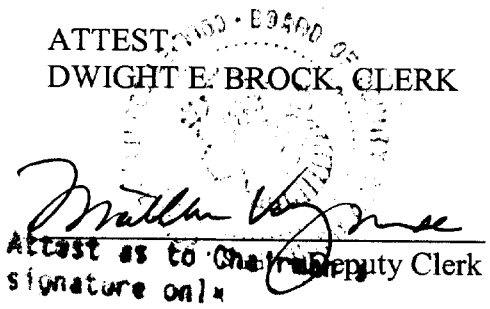 ATTEST:
BOARD OF
DWIGHT E. BROCK, CLERK
Attest as to Chairman's
Deputy Clerk
signature only